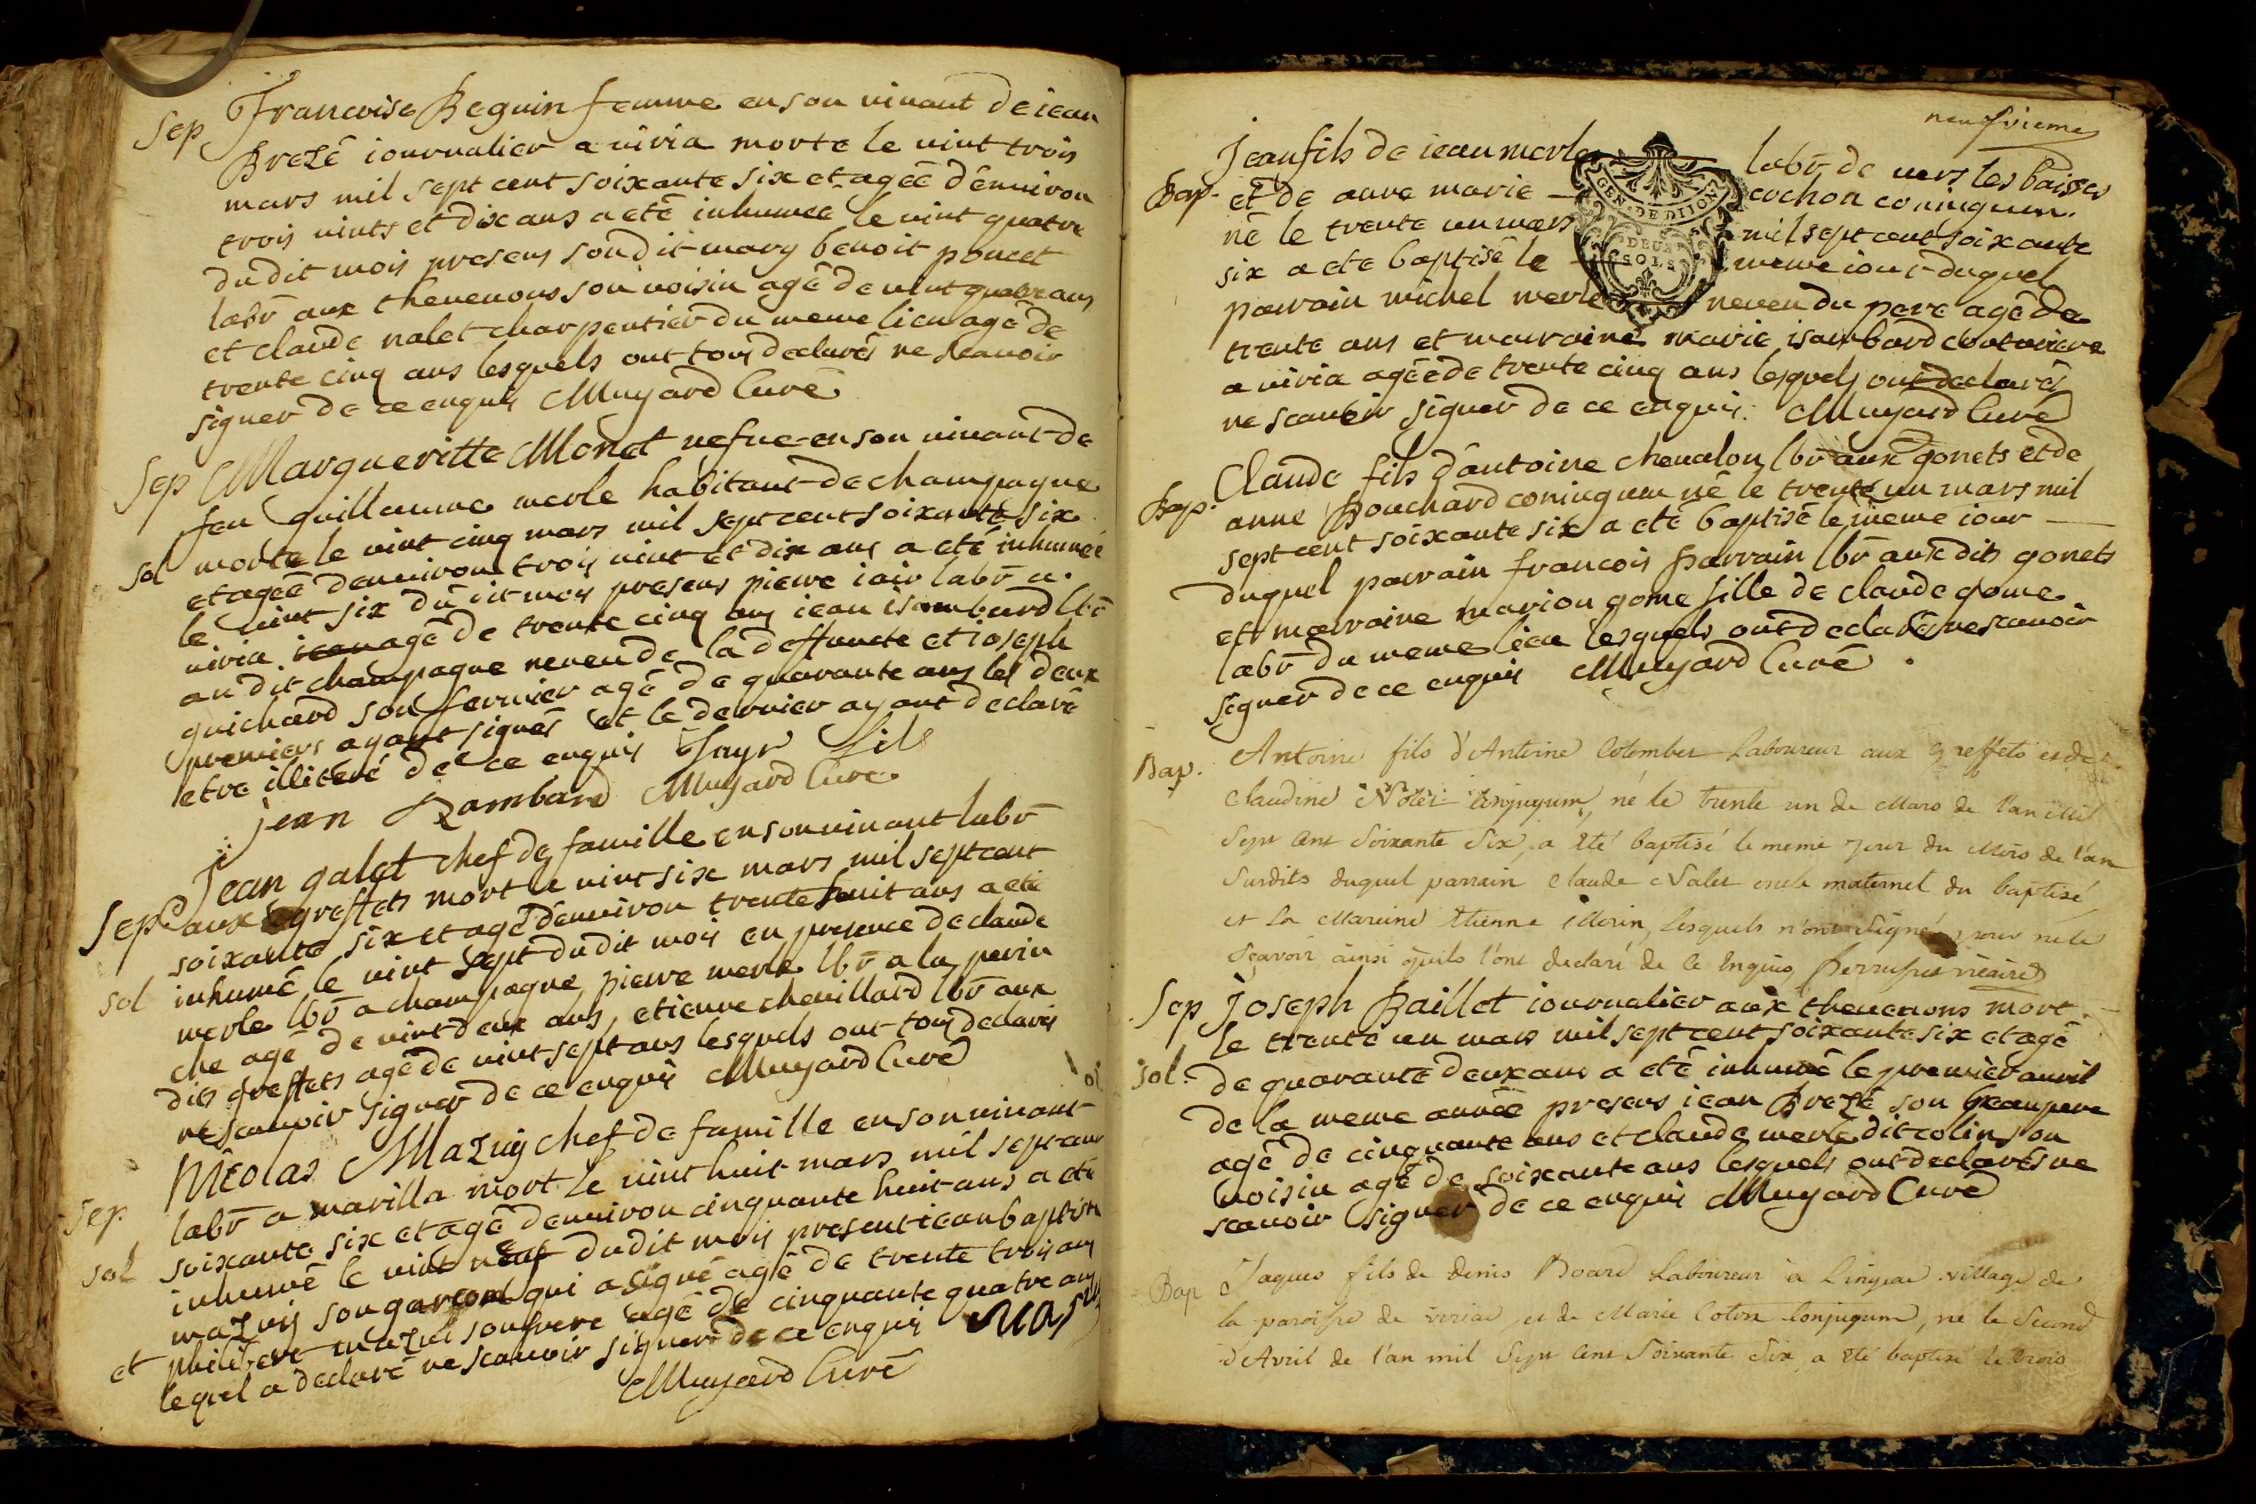 Sep Francoise Beguin femme en son vivant de iean
Brezé iournalier a viria morte le vint trois
mars mil sept cent soixante six et agée d'environ
trois vints et dix ans a eté inhumée le vint quatre
du dit mois presens son dit mary benoit poncet
labr̄ aux thevenons son voisin agé de vint quatre ans
et claude nalet charpentier du meme lieu agé de
trente cinq ans lesquels ont tous declarés ne scavoir
signer de ce enquis Muyard Curé
Sep Margueritte Monet vefue en son vivant de
feu guillaume merle habitant de champagne
sol morte le vint cinq mars mil sept cent soixante six
et agée d'environ trois vint et dix ans a eté inhumée
le vint six du dit mois presens pierre iair labr̄ a
viria agé de trente cinq ans iean isambard lbr̄
au dit champagne neveu de la deffuncte et ioseph
guichard son fermier agé de quarante ans les deux
premiers ayant signés et le dernier ayant declaré
etre illiteré de ce enquis Jayr fils
jean Zambard Muyard Curé
Jean galet chef de famille en son vivant labr̄
Sep aux greffets mort le vint six mars mil sept cent
soixante six et agé d'environ trente huit ans a eté
sol inhumé le vint sept du dit mois en presence de claude
merle lbr̄ a champagne, pierre merle lbr̄ a la perin
che agé de vint deux ans, etienne chevillard lbr̄ aux
dits greffets agé de vint sept ans lesquels ont tous declarés
ne scavoir signer de ce enquis Muyard Curé
Nicolas Mazuy chef de famille en son vivant
Sep. labr̄ a marilla mort le vint huit mars mil sept cent
soixante six et agé d'environ cinquante huit ans a eté
sol inhumé le vint neuf du dit mois present iean baptiste
mazuy son garcon qui a signé agé de trente trois ans
et philibert mazui son frere agé de cinquante quatre ans
lequel a declaré ne scavoir signer de ce enquis
Muyard Curé
neufvieme
Jean fils de iean merle labr̄ de vers les baisses
Bap. et de anne marie cochon coniugum.
né le trente un mars mil sept cent soixante
six a eté baptisé le meme iour duquel
parrain michel merle neveu du pere agé de
trente ans et marraine marie isambard couturiere
a viria agée de trente cinq ans lesquels ont declarés
ne scavoir signer de ce enquis. Muyard Curé
GEN. DE DIJON
DEUX
SOLS
Claude fils d'antoine chevalon lbr̄ aux gonets et de
Bap. anne Bouchard coniugum né le trente un mars mil
sept cent soixante six a eté baptisé le meme iour
duquel parrain francois parrain lbr̄ aux dits gonets
et marraine marion gome fille de claude gome
labr̄ du meme lieu lesquels ont declarés ne scavoir
signer de ce enquis Muyard Curé.
Bap. Antoine fils d'Antoine Colomber Laboureur aux greffets et de
Claudine Nolet Conjugum, né le trente un de Mars de l'an Mil
Sept Cent Soixante Six, a Eté baptisé le meme jour du Mois de l'an
Surdits duquel parrain Claude Nalet oncle maternel du baptisé
et La Mareine Etienne Morin, Lesquels n'ont Signés pour ne le
Sçavoir ainsi qu'ils l'ont declaré de Ce Enquis vicaire
Sep Joseph Baillet iournalier aux thevenons mort
le trente un mars mil sept cent soixante six et agé
sol. de quarante deux ans a eté inhumé le premier auvril
de la meme année presens iean Brezé son beaupere
agé de cinquante ans et claude merle dit colin son
voisin agé de soixante ans lesquels ont declarés ne
scavoir signer de ce enquis Muyard Curé
Bap Jaques fils de Denis Board Laboureur a village de
la paroisse de viriac et de Marie Coton Conjugum, né le Second
d'Avril de l'an mil Sept Cent Soixante Six, a Eté baptisé le trois